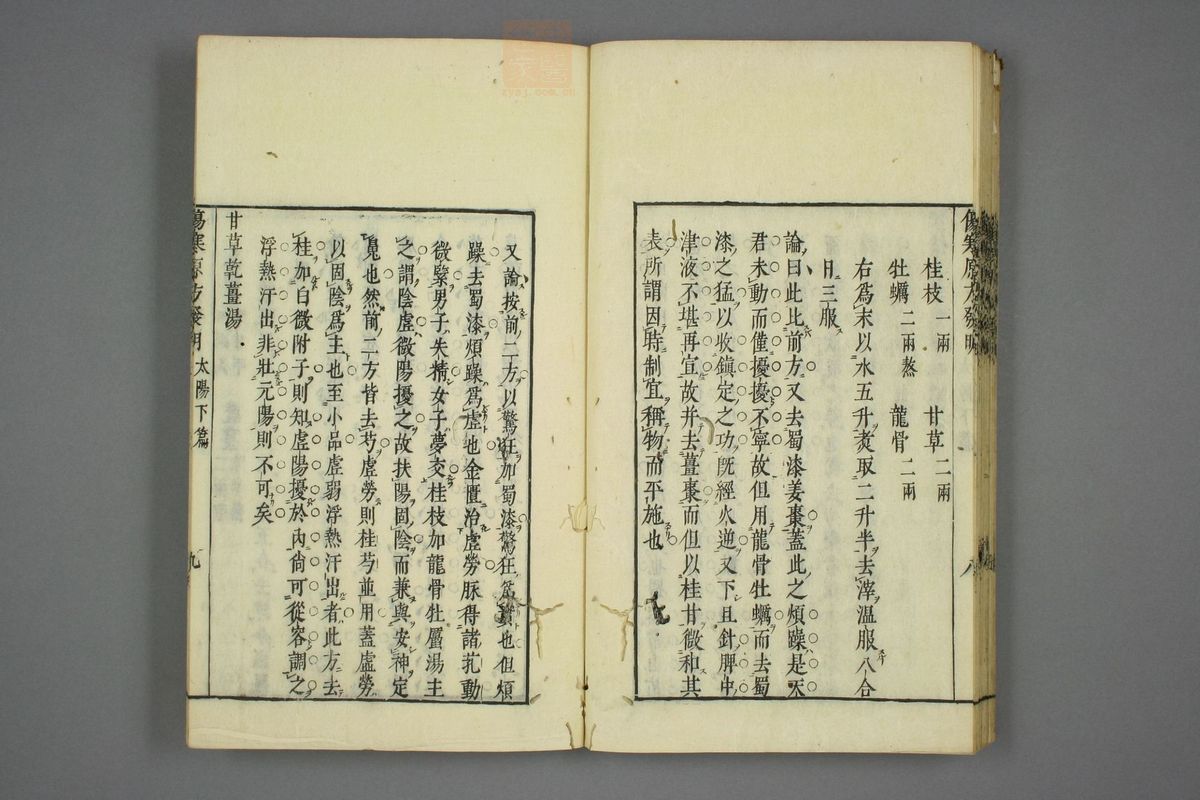 傷寒原方發明
桂枝一兩 甘草二兩
牡蠣二兩熬 龍骨二兩
右爲末以水五升煑取二升半去滓溫服八合
日三服
論曰此比前方又去蜀漆姜棗蓋此之煩躁是天
君未動而僮擾擾不寧故但用龍骨牡蠣而去蜀
漆之猛以收鎮定之功旣經火逆又下且針脾中
津液不堪再宣故并去薑棗而但以桂甘微和其
表所謂因時制宜稱物而平施也
八
又論按前二方以驚狂加蜀漆驚狂爲實也但煩
躁去蜀漆煩躁爲虛也金匱治虛勞脉得諸芤動
微緊男子失精女子夢交桂枝加龍骨牡厲湯主
之謂陰虛微陽擾之故扶陽固陰而兼與安神定
䰟也然前二方皆去芍虛勞則桂芍並用蓋虛勞
以固陰爲主也至小品虛弱浮熱汗出者此方去
桂加白微附子則知虛陽擾於內尙可從容調之
浮熱汗出非壯元陽則不可矣
甘草乾薑湯
傷寒原方發明 太陽下篇 九
zysj.com.cn